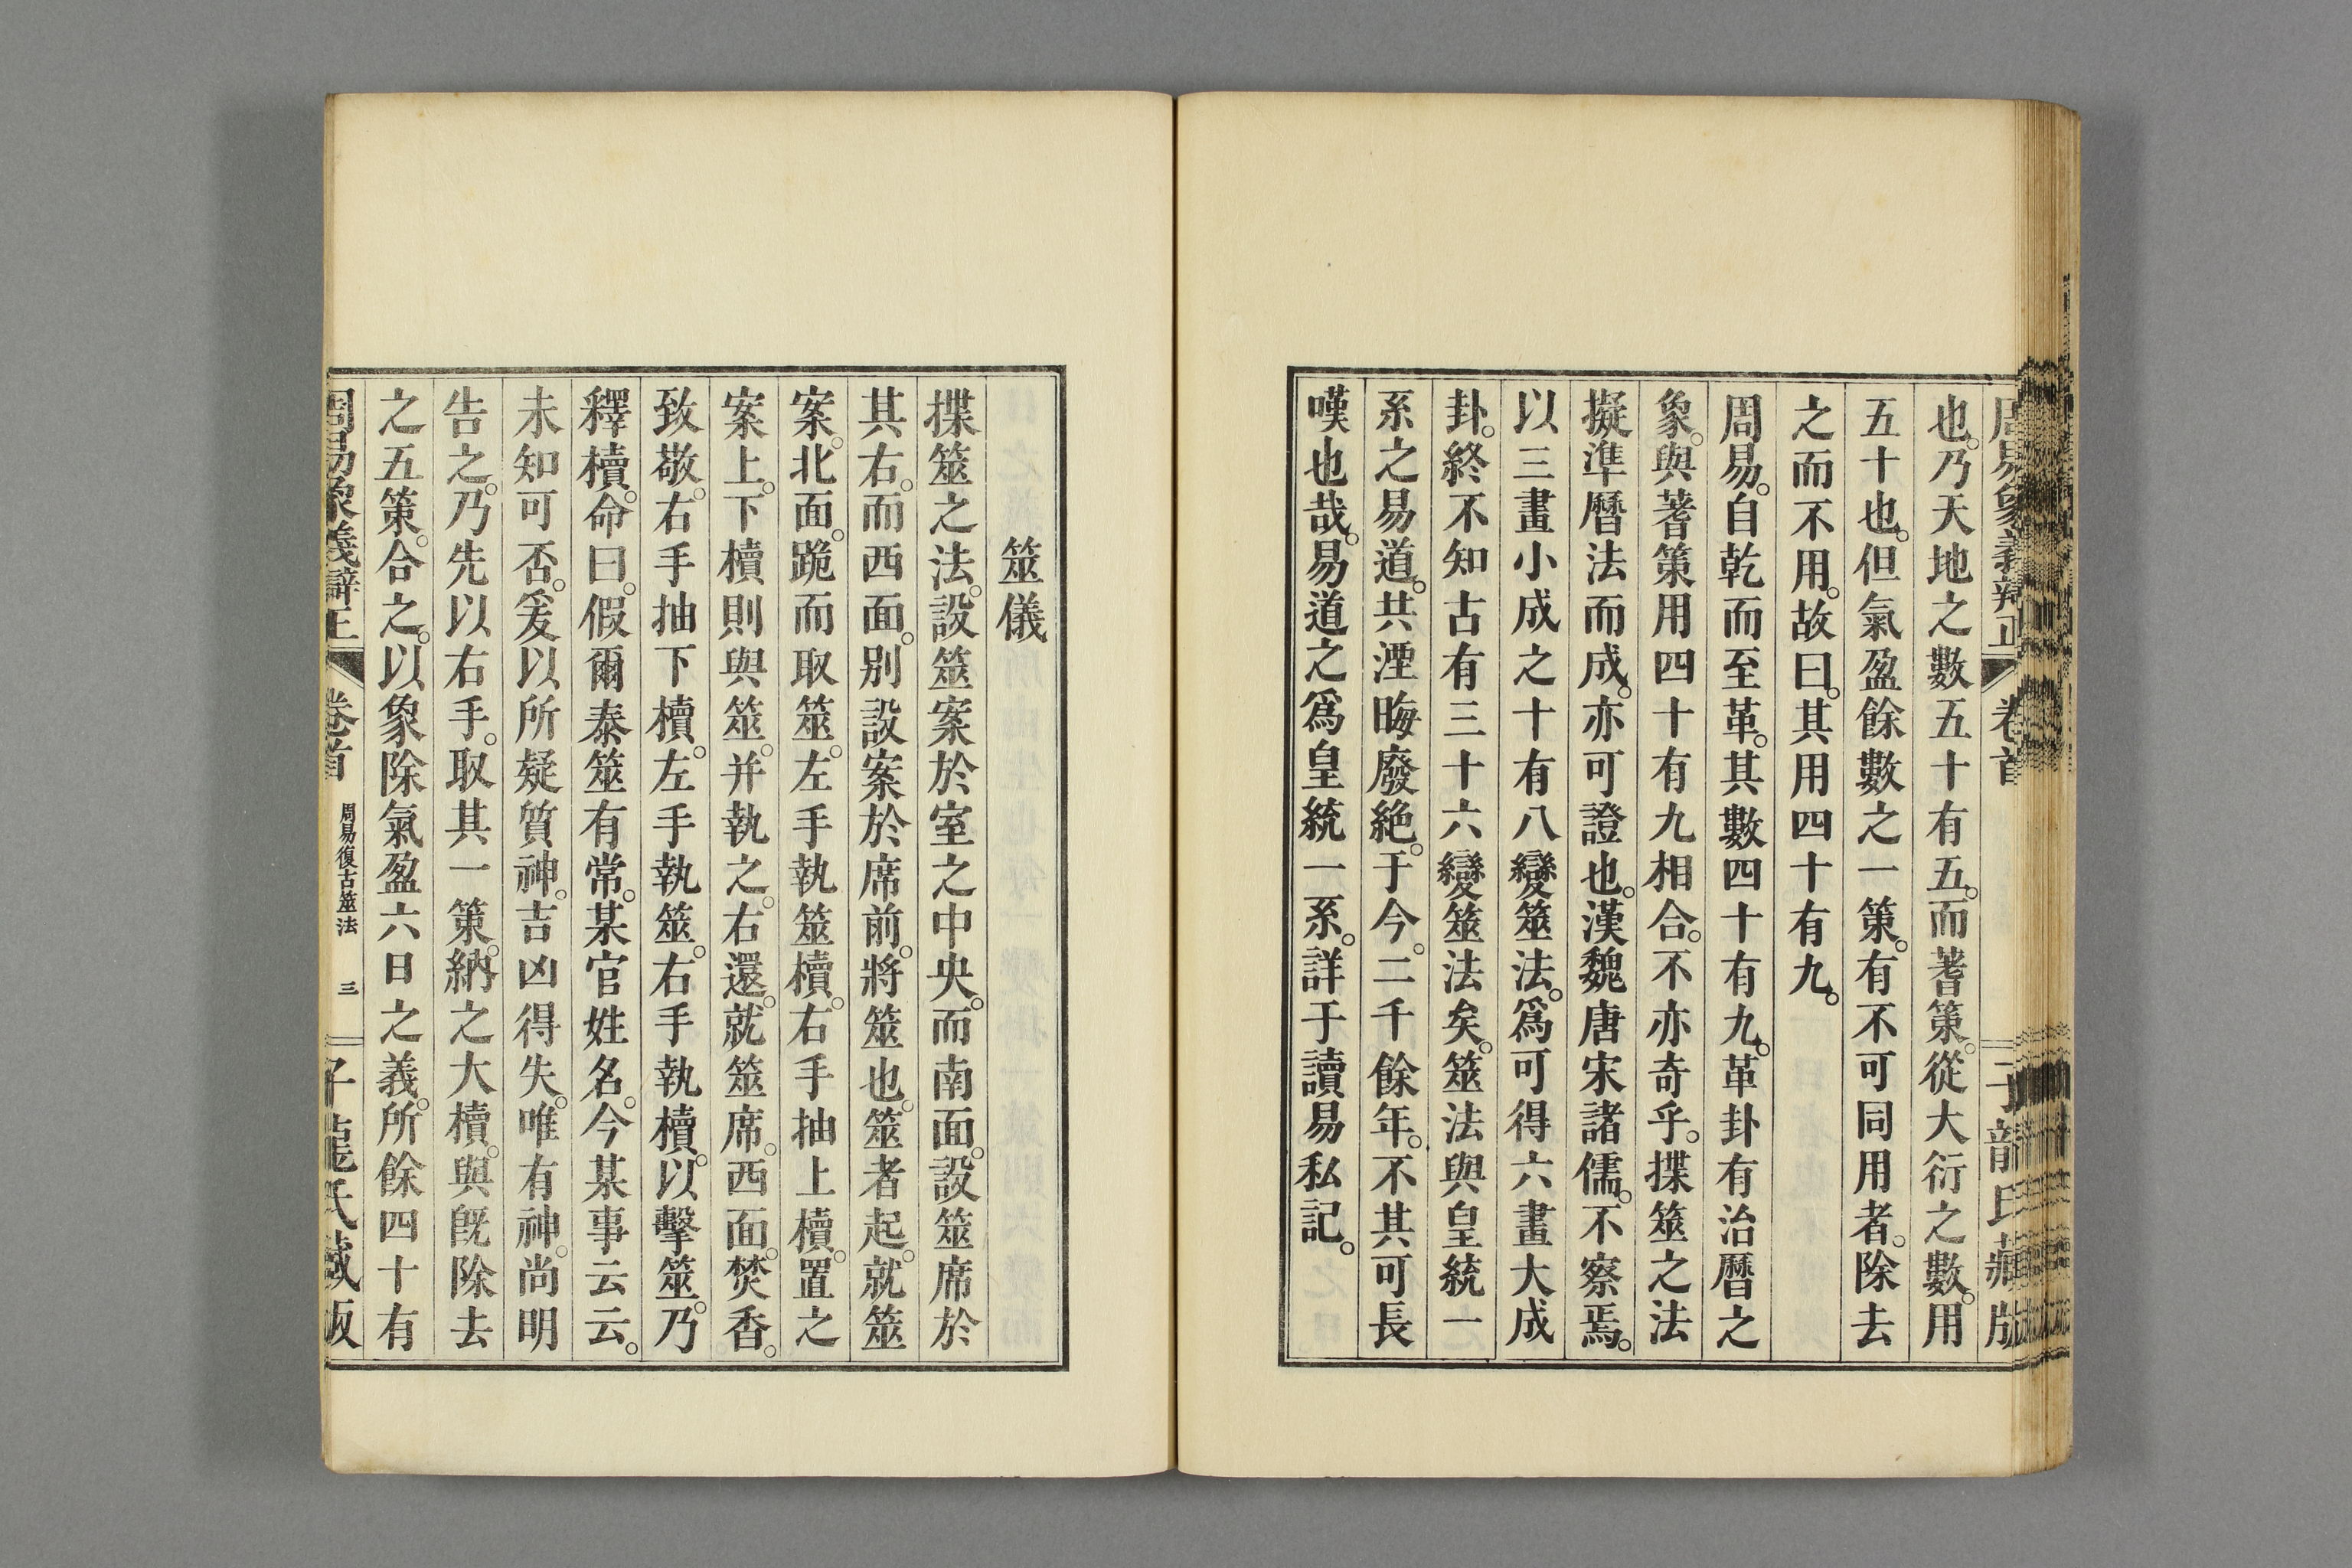 周易象義辯正 卷首 子龍氏藏版
也。乃天地之數五十有五。而蓍策。從大衍之數。用
五十也。但氣盈餘數之一策。有不可同用者。除去
之而不用。故曰。其用四十有九。
周易。自乾而至革。其數四十有九。革卦有治曆之
象。與蓍策用四十有九相合。不亦奇乎。揲筮之法
擬準曆法而成。亦可證也。漢魏唐宋諸儒。不察焉。
以三畫小成之十有八變筮法。爲可得六畫大成
卦。終不知古有三十六變筮法矣。筮法與皇統一
系之易道。共湮晦廢絶。于今。二千餘年。不其可長
嘆也哉。易道之爲皇統一系。詳于讀易私記。
筮儀
揲筮之法。設筮案於室之中央。而南面。設筮席於
其右。而西面。別設案於席前。將筮也。筮者起。就筮
案。北面。跪而取筮。左手執筮櫝。右手抽上櫝。置之
案上。下櫝則與筮。并執之。右還。就筮席。西面。焚香。
致敬。右手抽下櫝。左手執筮。右手執櫝。以擊筮。乃
釋櫝。命曰。假爾泰筮有常。某官姓名。今某事云云。
未知可否。爰以所疑質神。吉凶得失。唯有神。尚明
告之。乃先以右手。取其一策。納之大櫝。與旣除去
之五策。合之。以象除氣盈六日之義。所餘四十有
周易象義辯正 卷首 周易復古筮法 三 子龍氏藏版